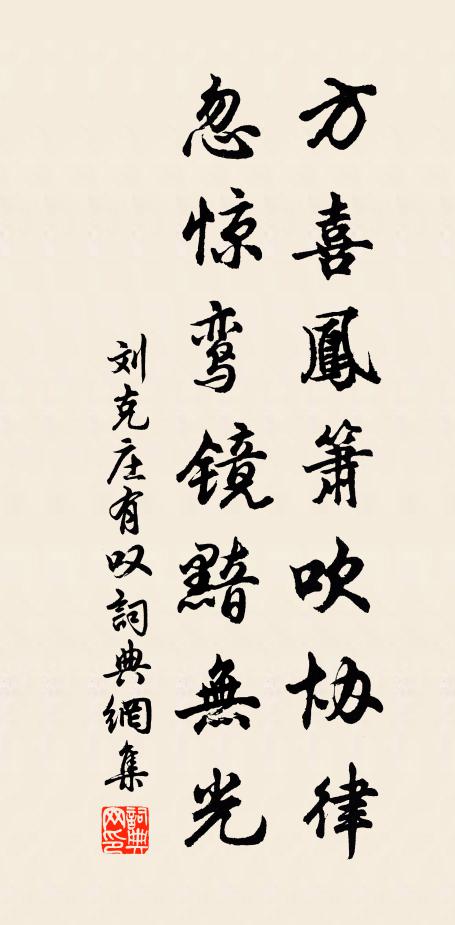 方喜鳳箫吹协律
忽惊鸾镜黯無光
刘克庄有叹詞典網集
詞典网印